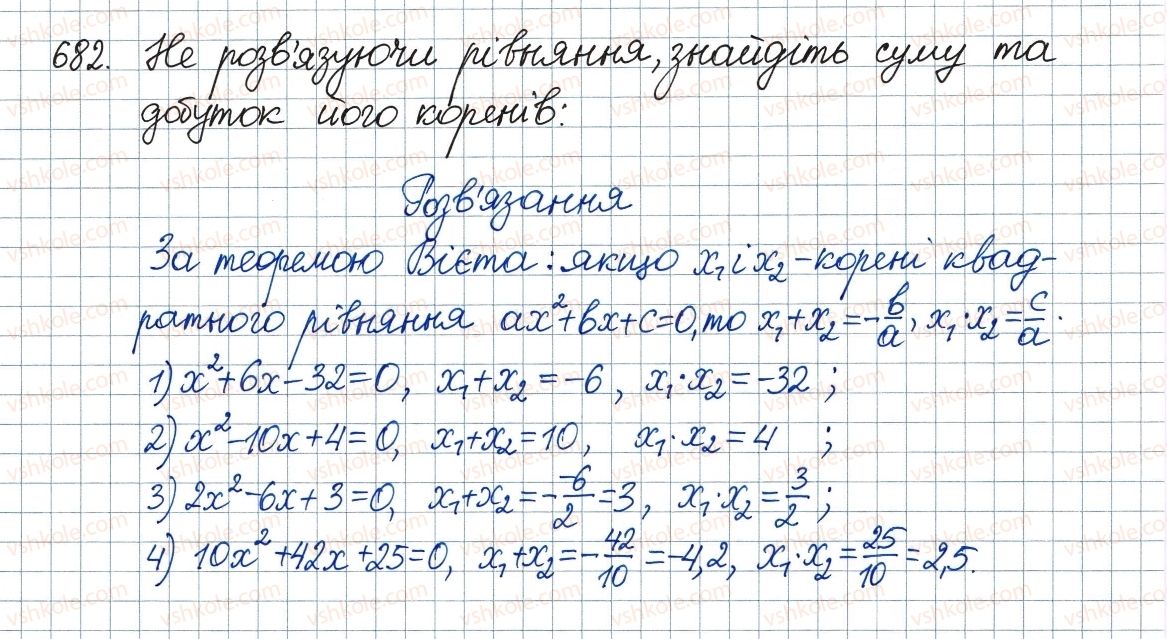 682. Не розв'язуючи рівняння, знайдіть суму та
добуток його коренів:
Розв'язання
За теоремою Вієта: якщо x₁ і x₂ - корені квад-
ратного рівняння ax²+bx+c=0, то x₁+x₂=-b/a, x₁·x₂=c/a.
1) x²+6x-32=0, x₁+x₂=-6, x₁·x₂=-32;
2) x²-10x+4=0, x₁+x₂=10, x₁·x₂=4;
3) 2x²-6x+3=0, x₁+x₂=-(-6)/2=3, x₁·x₂=3/2;
4) 10x²+42x+25=0, x₁+x₂=-42/10=-4,2, x₁·x₂=25/10=2,5.
vshkole.com